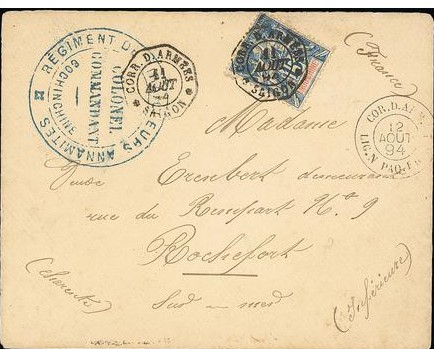 RÉGIMENT DE TIRAILLEURS ANNAMITES
COCHINCHINE
COLONEL
COMMANDANT
CORR. D. ARMÉES
11
AOUT
94
SAIGON
CORR. D. ARMÉES
11
AOUT
94
SAIGON
(France)
COR. D. AR
12
AOUT
94
LIG. N PAQ. FR
Madame
Erembert demeurant
rue du Rempart Nº 9
Rochefort
(Charente
Inférieure)
Sud-